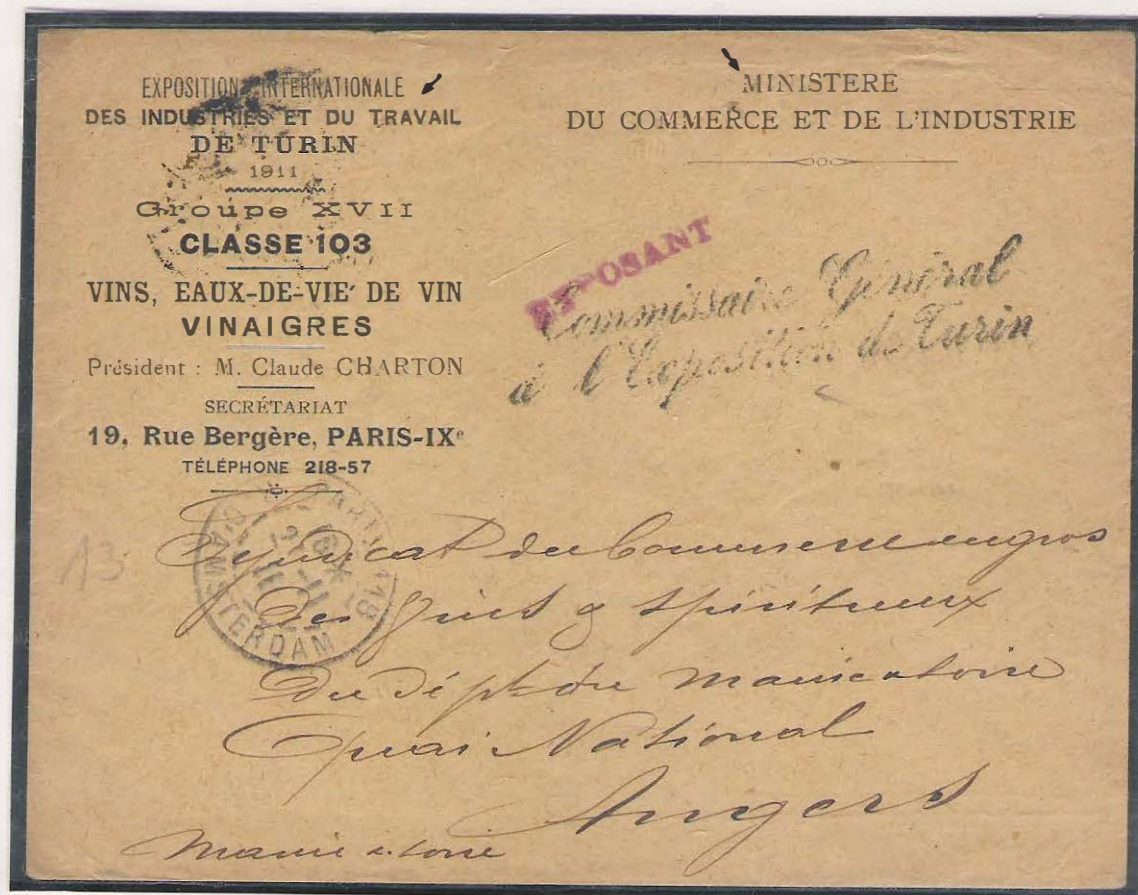 EXPOSITION INTERNATIONALE
DES INDUSTRIES ET DU TRAVAIL
DE TURIN
1911
Groupe XVII
CLASSE 103
VINS, EAUX-DE-VIE DE VIN
VINAIGRES
Président : M. Claude CHARTON
SECRÉTARIAT
19, Rue Bergère, PARIS-IXe
TÉLÉPHONE 218-57
MINISTERE
DU COMMERCE ET DE L'INDUSTRIE
EXPOSANT
Commissaire Général
à l'Exposition de Turin
PARIS 118
D'AMSTERDAM
13
Syndicat du Commerce en gros
des Vins & Spiritueux
du Dépt de Maine & Loire
Quai National
Angers
Maine & Loire